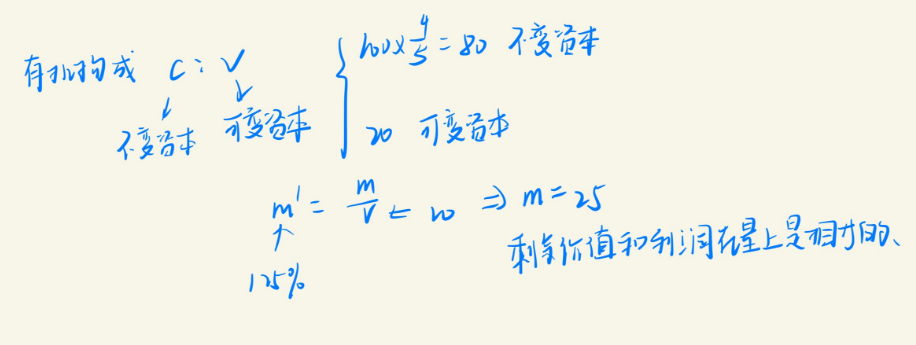 有机构成 C : V
不变资本 可变资本
100×4/5=80 不变资本
20 可变资本
m' = m/V ← 20 ⇒ m=25
125%
剩余价值和利润在量上是相等的、